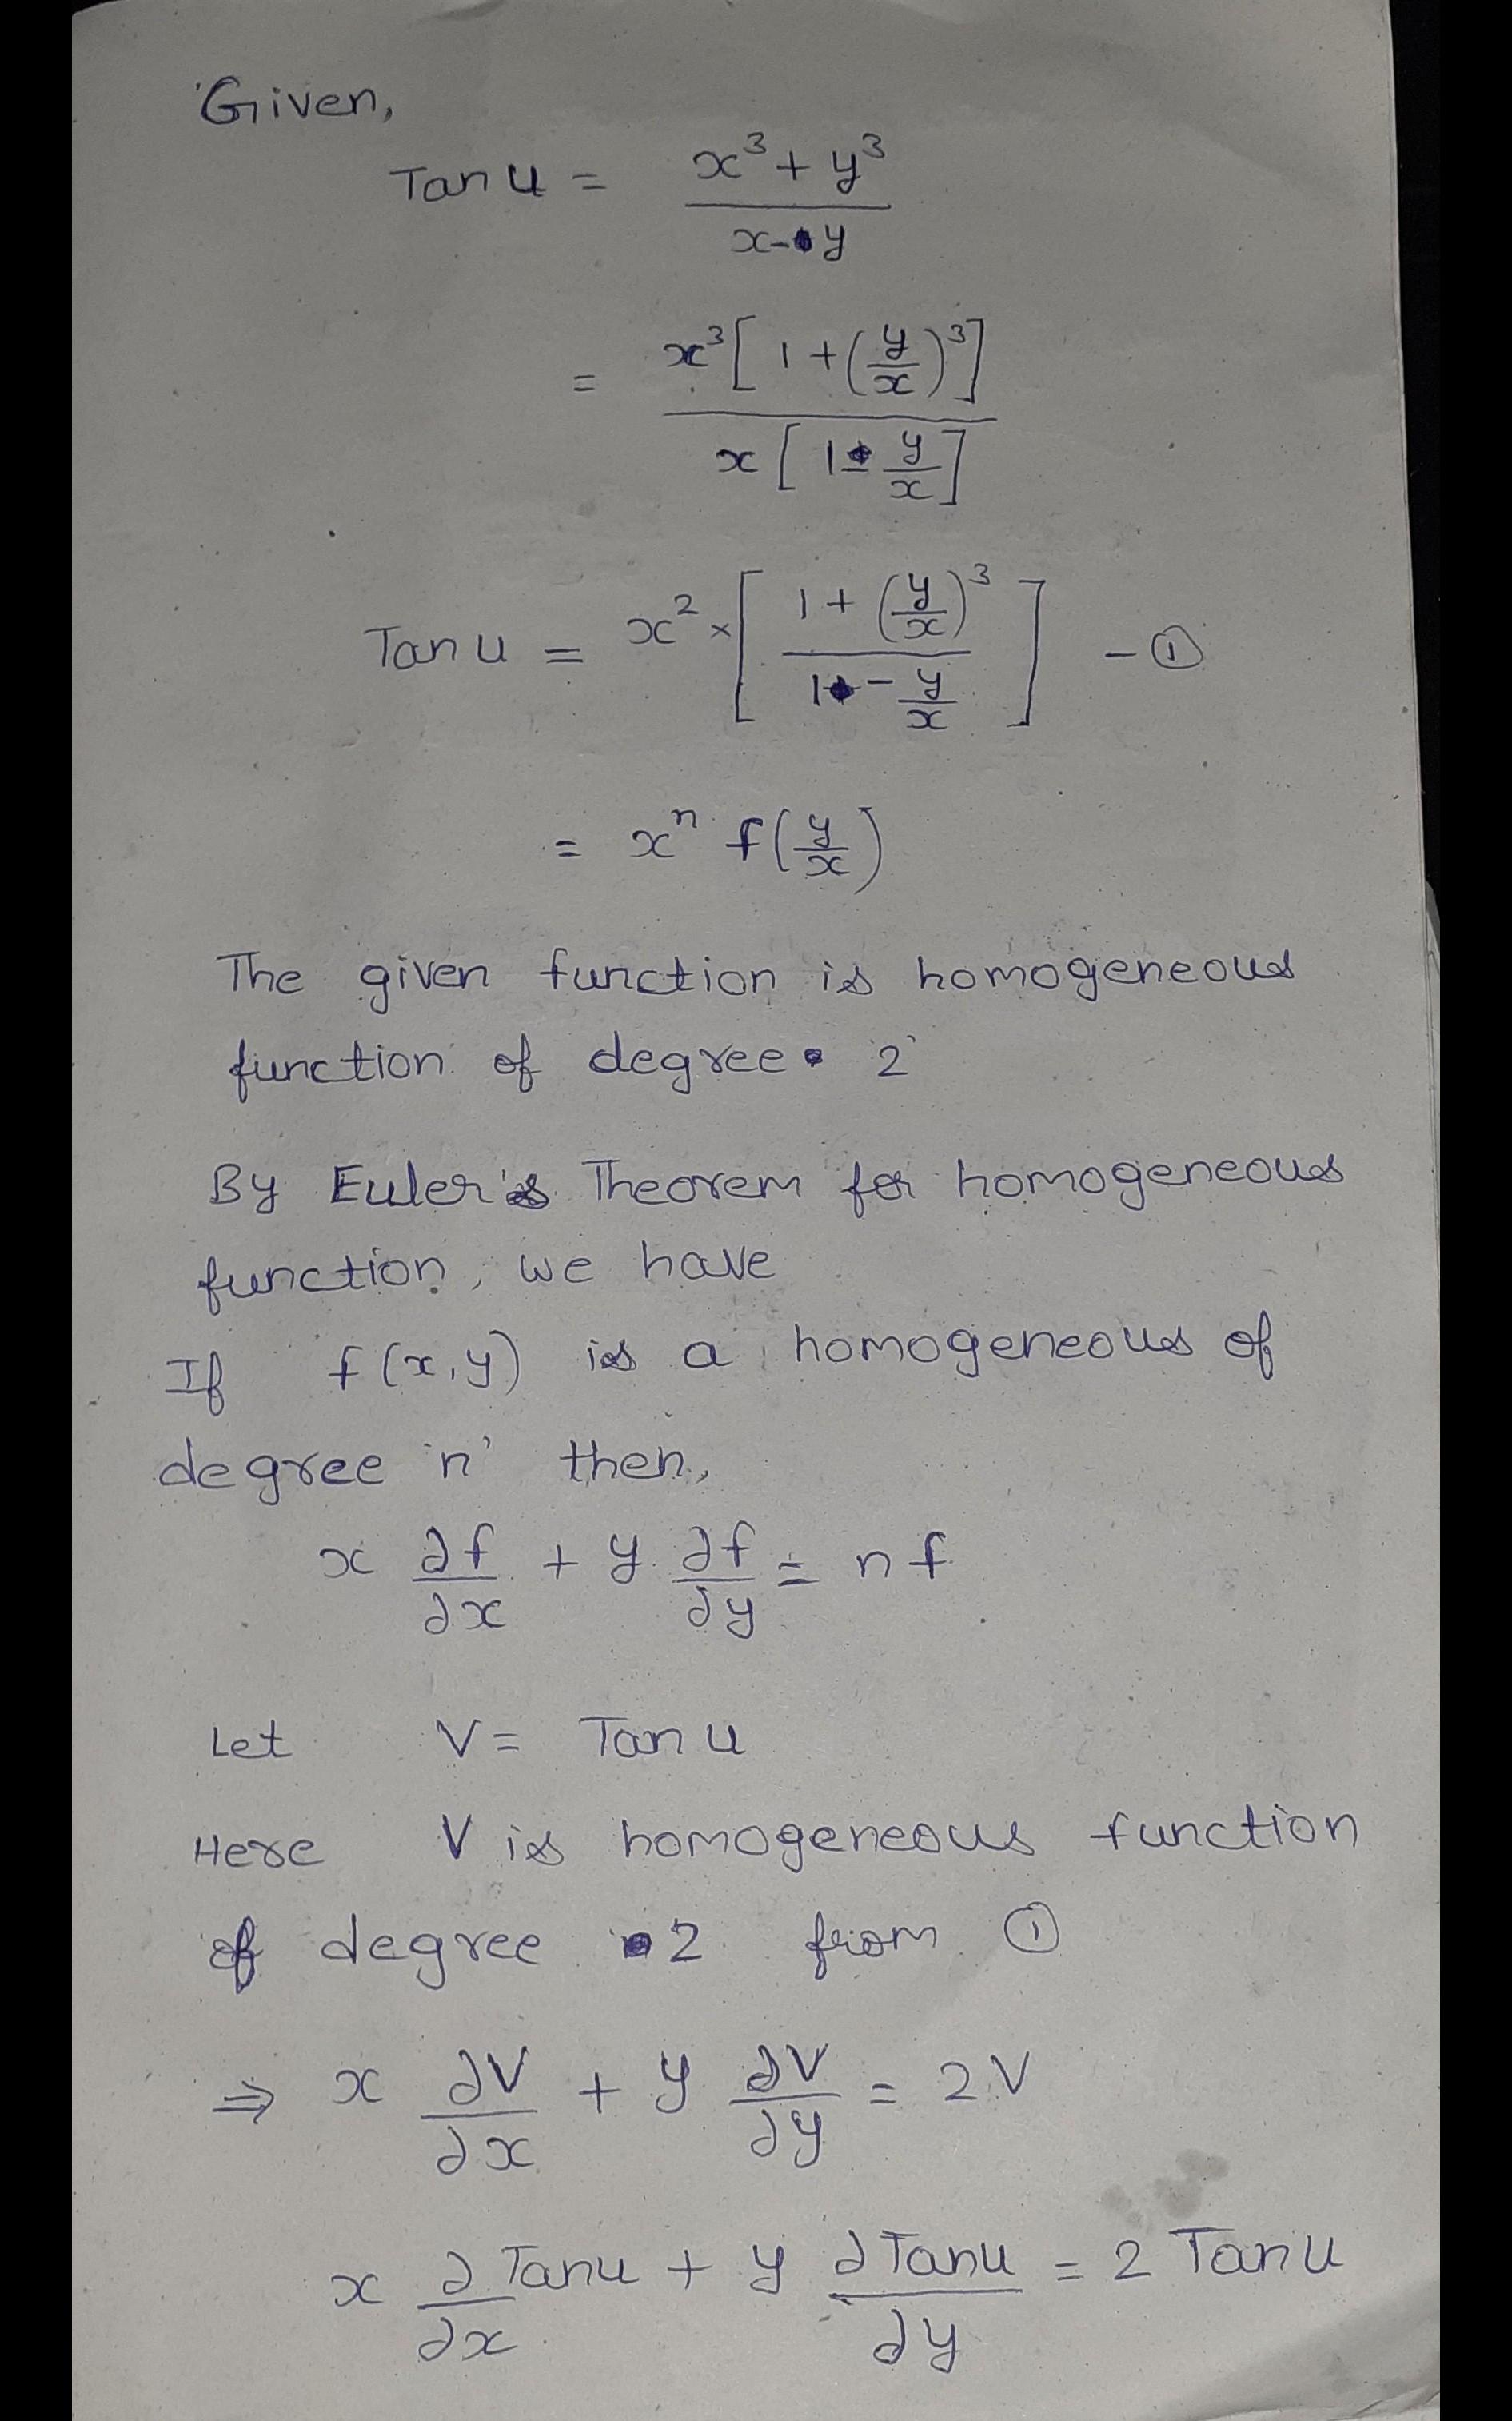 Given,
Tan u = x³ + y³ / x - y
= x³ [ 1 + (y/x)³ ] / x [ 1 - y/x ]
Tan u = x² × [ 1 + (y/x)³ / 1 - y/x ] - ①
= xⁿ f(y/x)
The given function is homogeneous
function of degree 2
By Euler's Theorem for homogeneous
function, we have
If f(x,y) is a homogeneous of
degree 'n' then,
x ∂f/∂x + y ∂f/∂y = n f
Let V = Tan u
Here V is homogeneous function
of degree 2 from ①
⇒ x ∂V/∂x + y ∂V/∂y = 2V
x ∂/∂x Tan u + y ∂Tan u/∂y = 2 Tan u